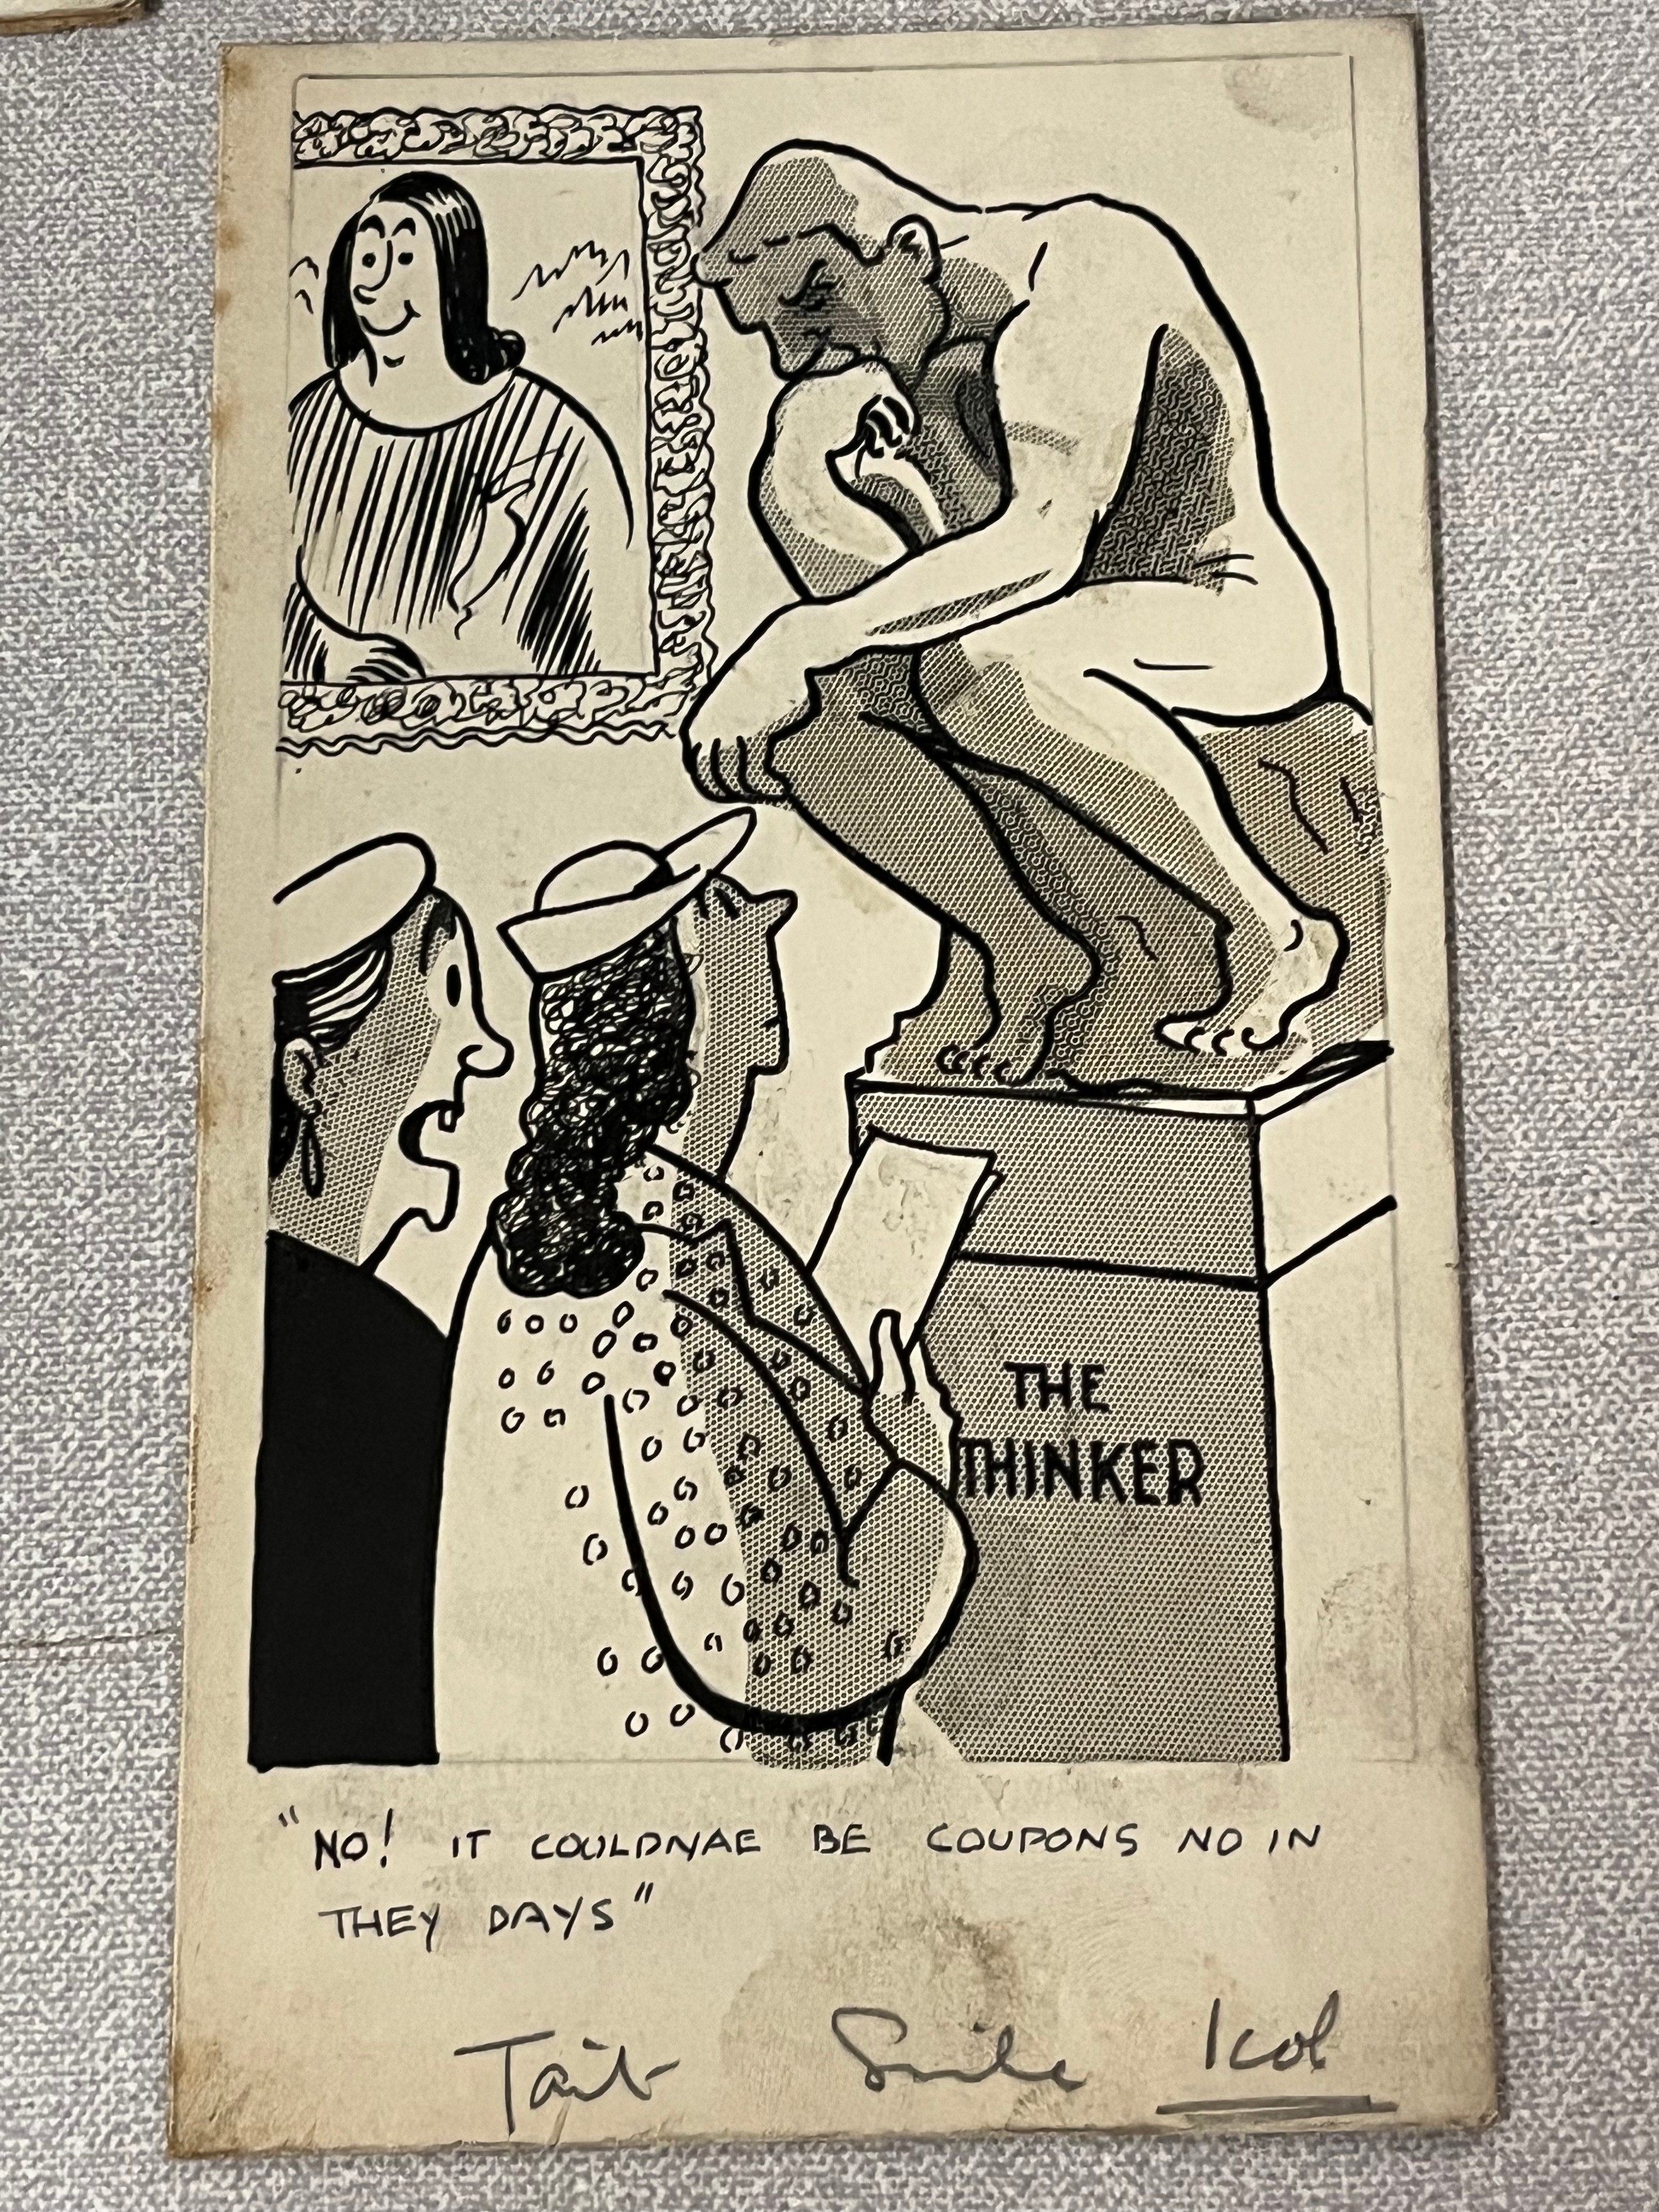 THE
THINKER
"NO! IT COULDNAE BE COUPONS NO IN
THEY DAYS"
Tait Smile 1 col